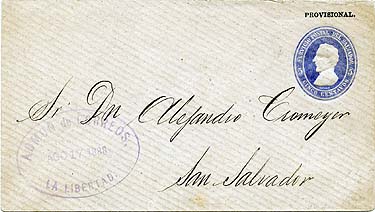 PROVISIONAL.
SERVICIO POSTAL DEL SALVADOR
CINCO CENTAVOS
Sr. Dn. Alejandro Cromeyer
San Salvador
ADMON DE CORREOS.
AGO 17 1888
LA LIBERTAD.